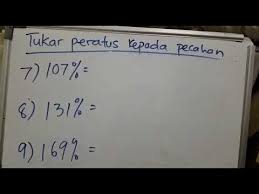 Tukar peratus kepada pecahan
7) 107% =
8) 131% =
9) 169% =